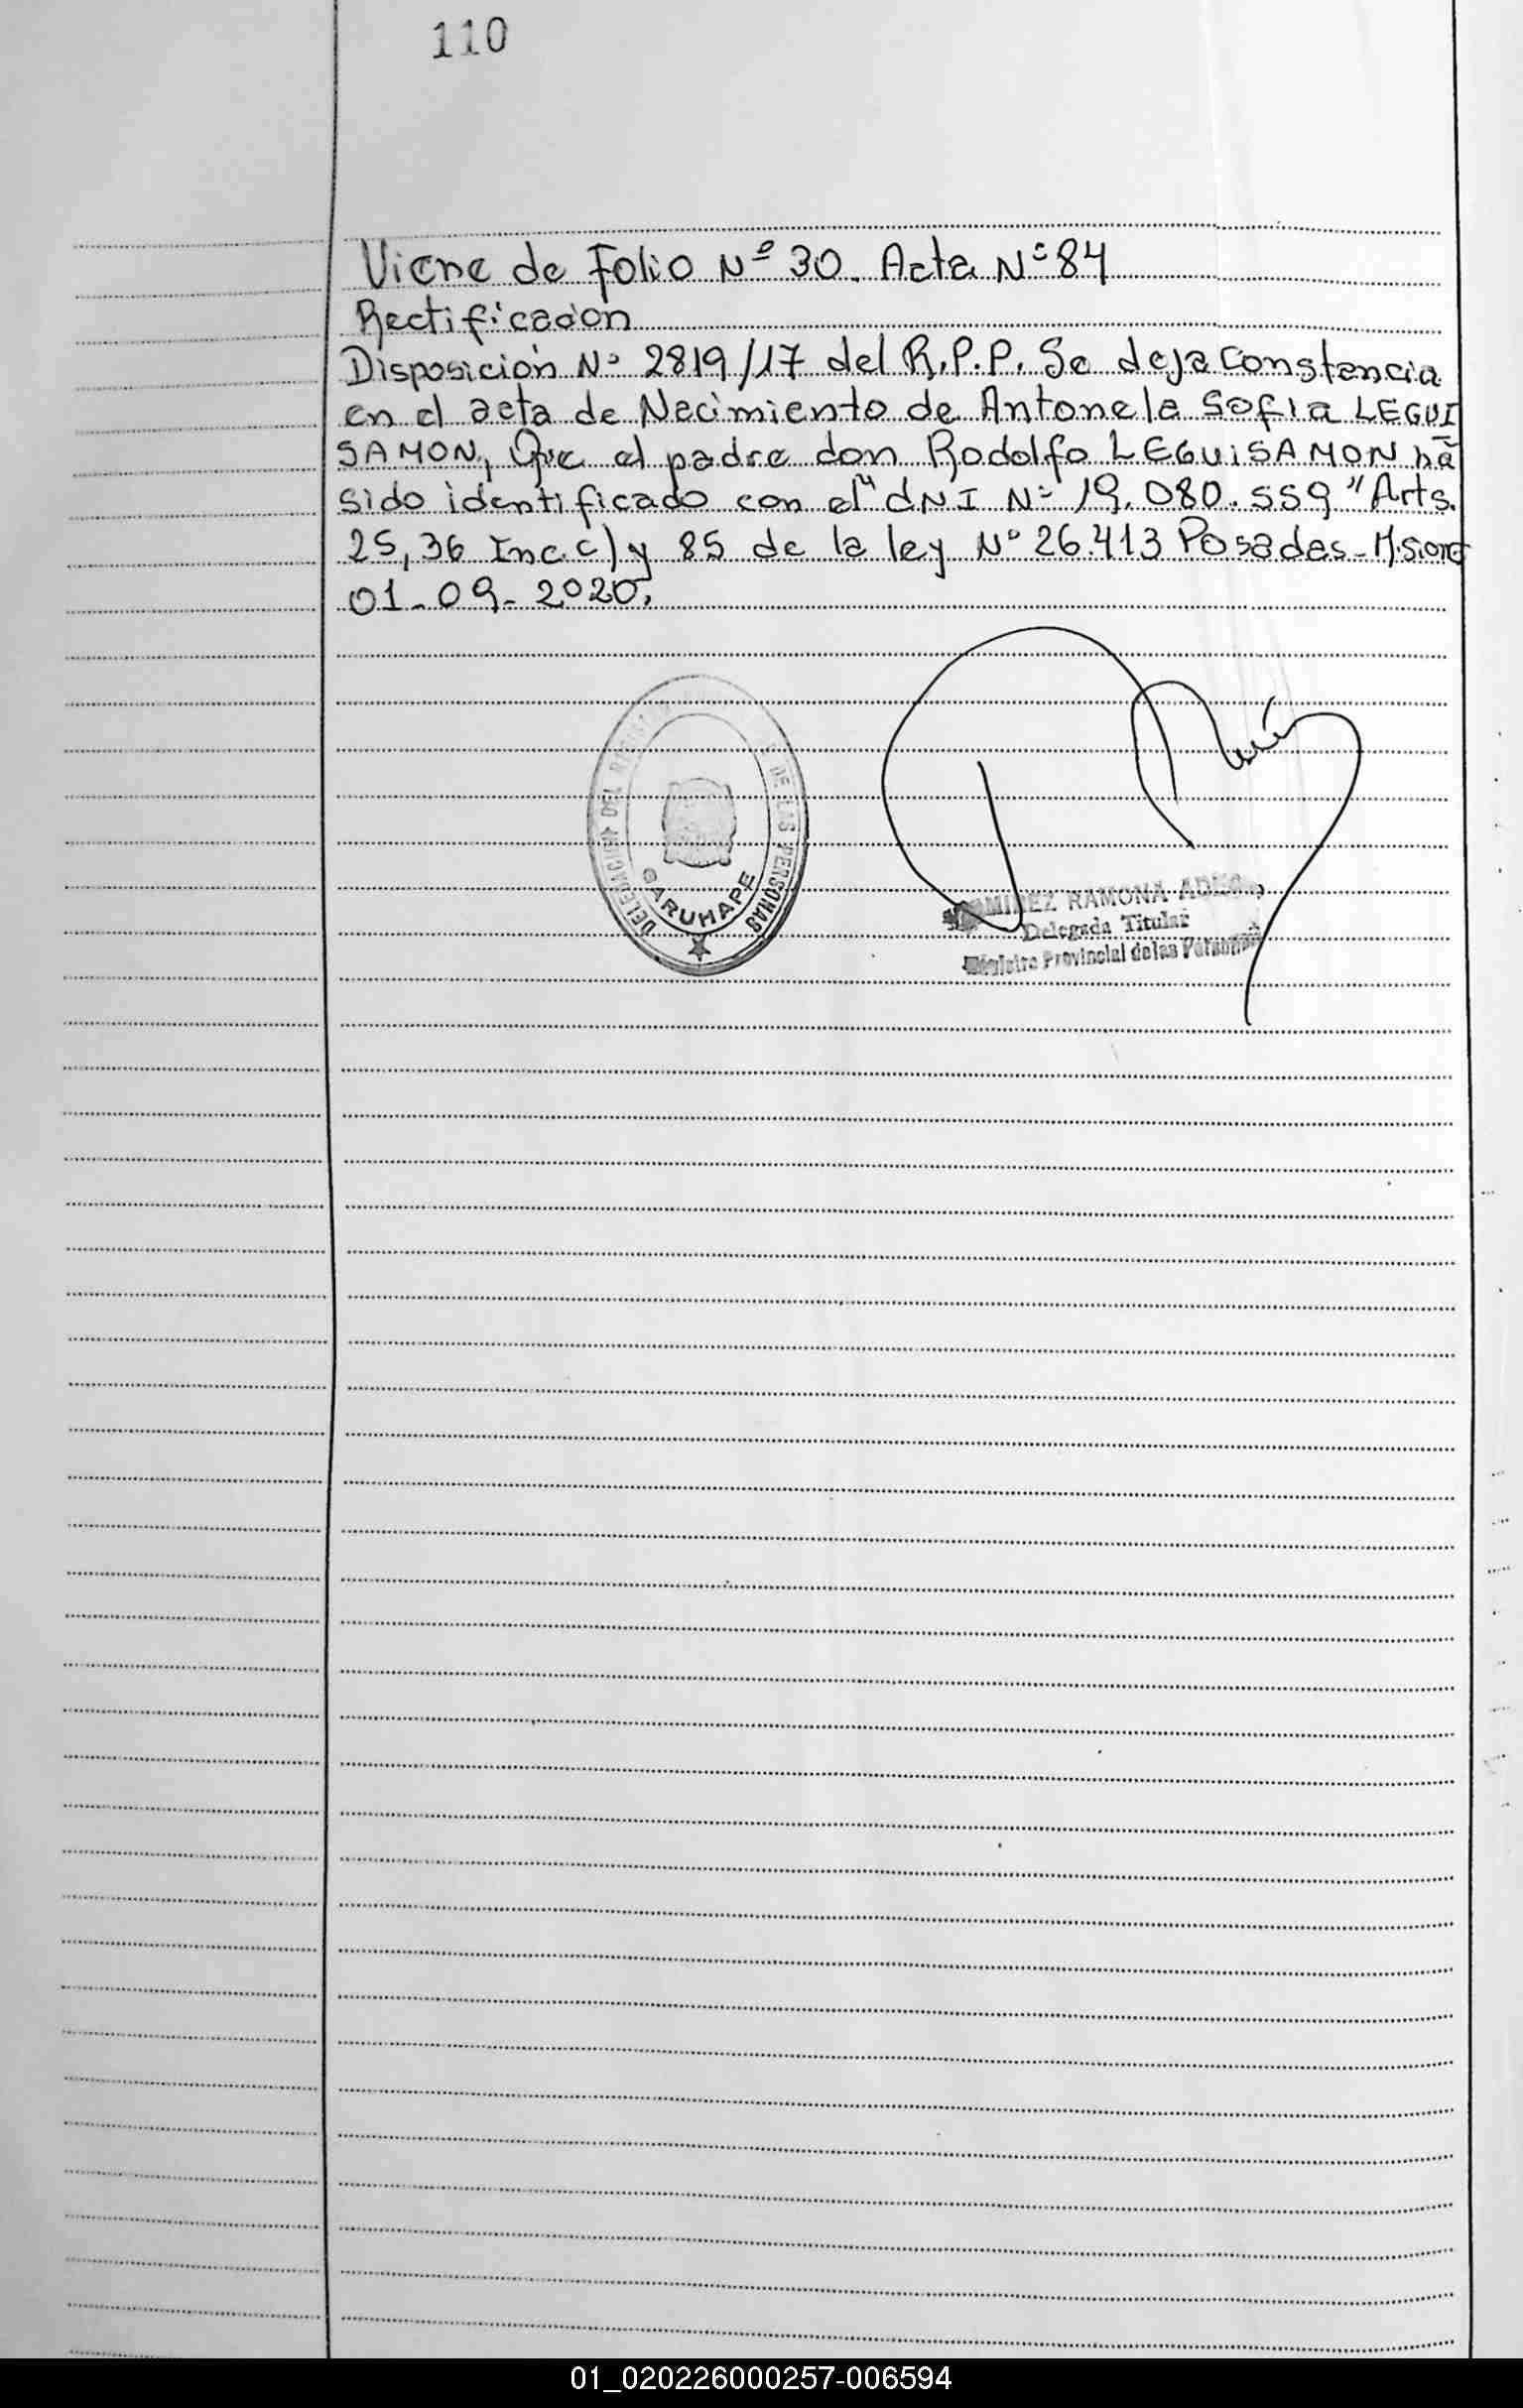 110
Viene de Folio Nº 30. Acta Nº 84
Rectificación
Disposición Nº 2819/17 del R.P.P. Se deja Constancia
en el acta de Nacimiento de Antonela Sofia LEGUI
SAMON, Que el padre don Rodolfo LEGUISAMON ha
sido identificado con el "dNI Nº 19.080.559" Arts.
25, 36 Inc. c) y 85 de la ley Nº 26.413 Posadas - Misiones
01-09-2020.
DELEGACION DEL DE LAS PERSONAS
GARUHAPE
RAMONA
Delegada Titular
Provincial de las Personas
01_020226000257-006594